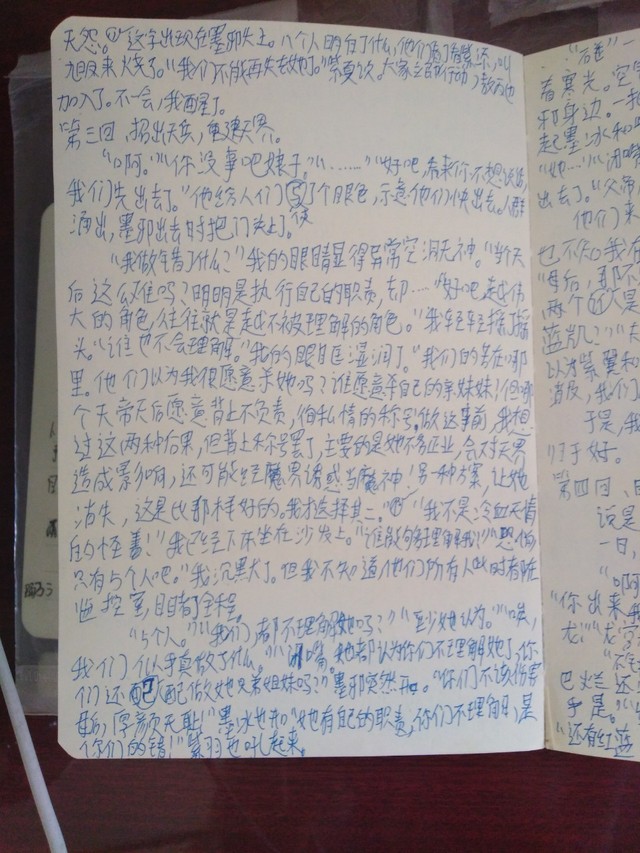 天然。①这字出现在墨邪头上。八个人明白了什么,他们
火烧了。"我们不能再失去她了。"大家立即行动,
加入了。不一会,我醒了。
第三回,招出天兵,重建天界。
"啊。""你没事吧妹子。""……""好吧,看来你不想说话
我们先出去了。"他给人们使了个眼色,示意他们快出去。人群
涌出,墨邪出去时把门关上了。
"我做错了什么?"我的眼睛显得异常空洞无神。"当个天
后这么难吗?明明是执行自己的职责,却…""好吧,越伟
大的角色,往往就是越不被理解的角色。"我轻轻摇了摇
头。"谁也不会理解。"我的眼眶湿润了。"我们的名在哪
里。他们以为我很愿意杀她吗?谁愿意杀自己的亲妹妹!但哪
个天帝天后愿意背上不负责,徇私情的称号。做这事前,我想
过这两种后果,但背上称号罢了,主要的是她不务正业,会对天界
造成影响,还可能经魔界诱惑当魔神!另一种方案,让她
消失,这是比那样好的。我才选择其二。""我不是冷血无情
的怪兽!"我已经下床坐在沙发上。"谁能够理解我!""恐怕
只有5个人吧。"我沉默了。但我不知道他们所有人此时都在
监控室,目睹了全程。
"5个人。""我们,都不理解她吗?""至少她认为。""唉,
我们似乎真做了什么。""她都认为你们不理解她了,你
们还配做她兄弟姐妹吗?"墨邪突然开口。"你们不该伤害
母后,厚颜无耻!"墨冰也开口"她有自己的职责,你们不理解,是
你们的错!"紫羽也吼起来。
"后
着寒光。空气
邪身边。一把
起墨冰和
"她…"
出去了。"父帝
他们来
也不知我
"母后,那不
两个
蓝凯?""天
以为紫翼和
消没,我们
于是,我
归于好。
第四回,
说是
一日,
"啊
"你出来
龙!""龙
"不
巴烂 还
手是。
"还有红蓝